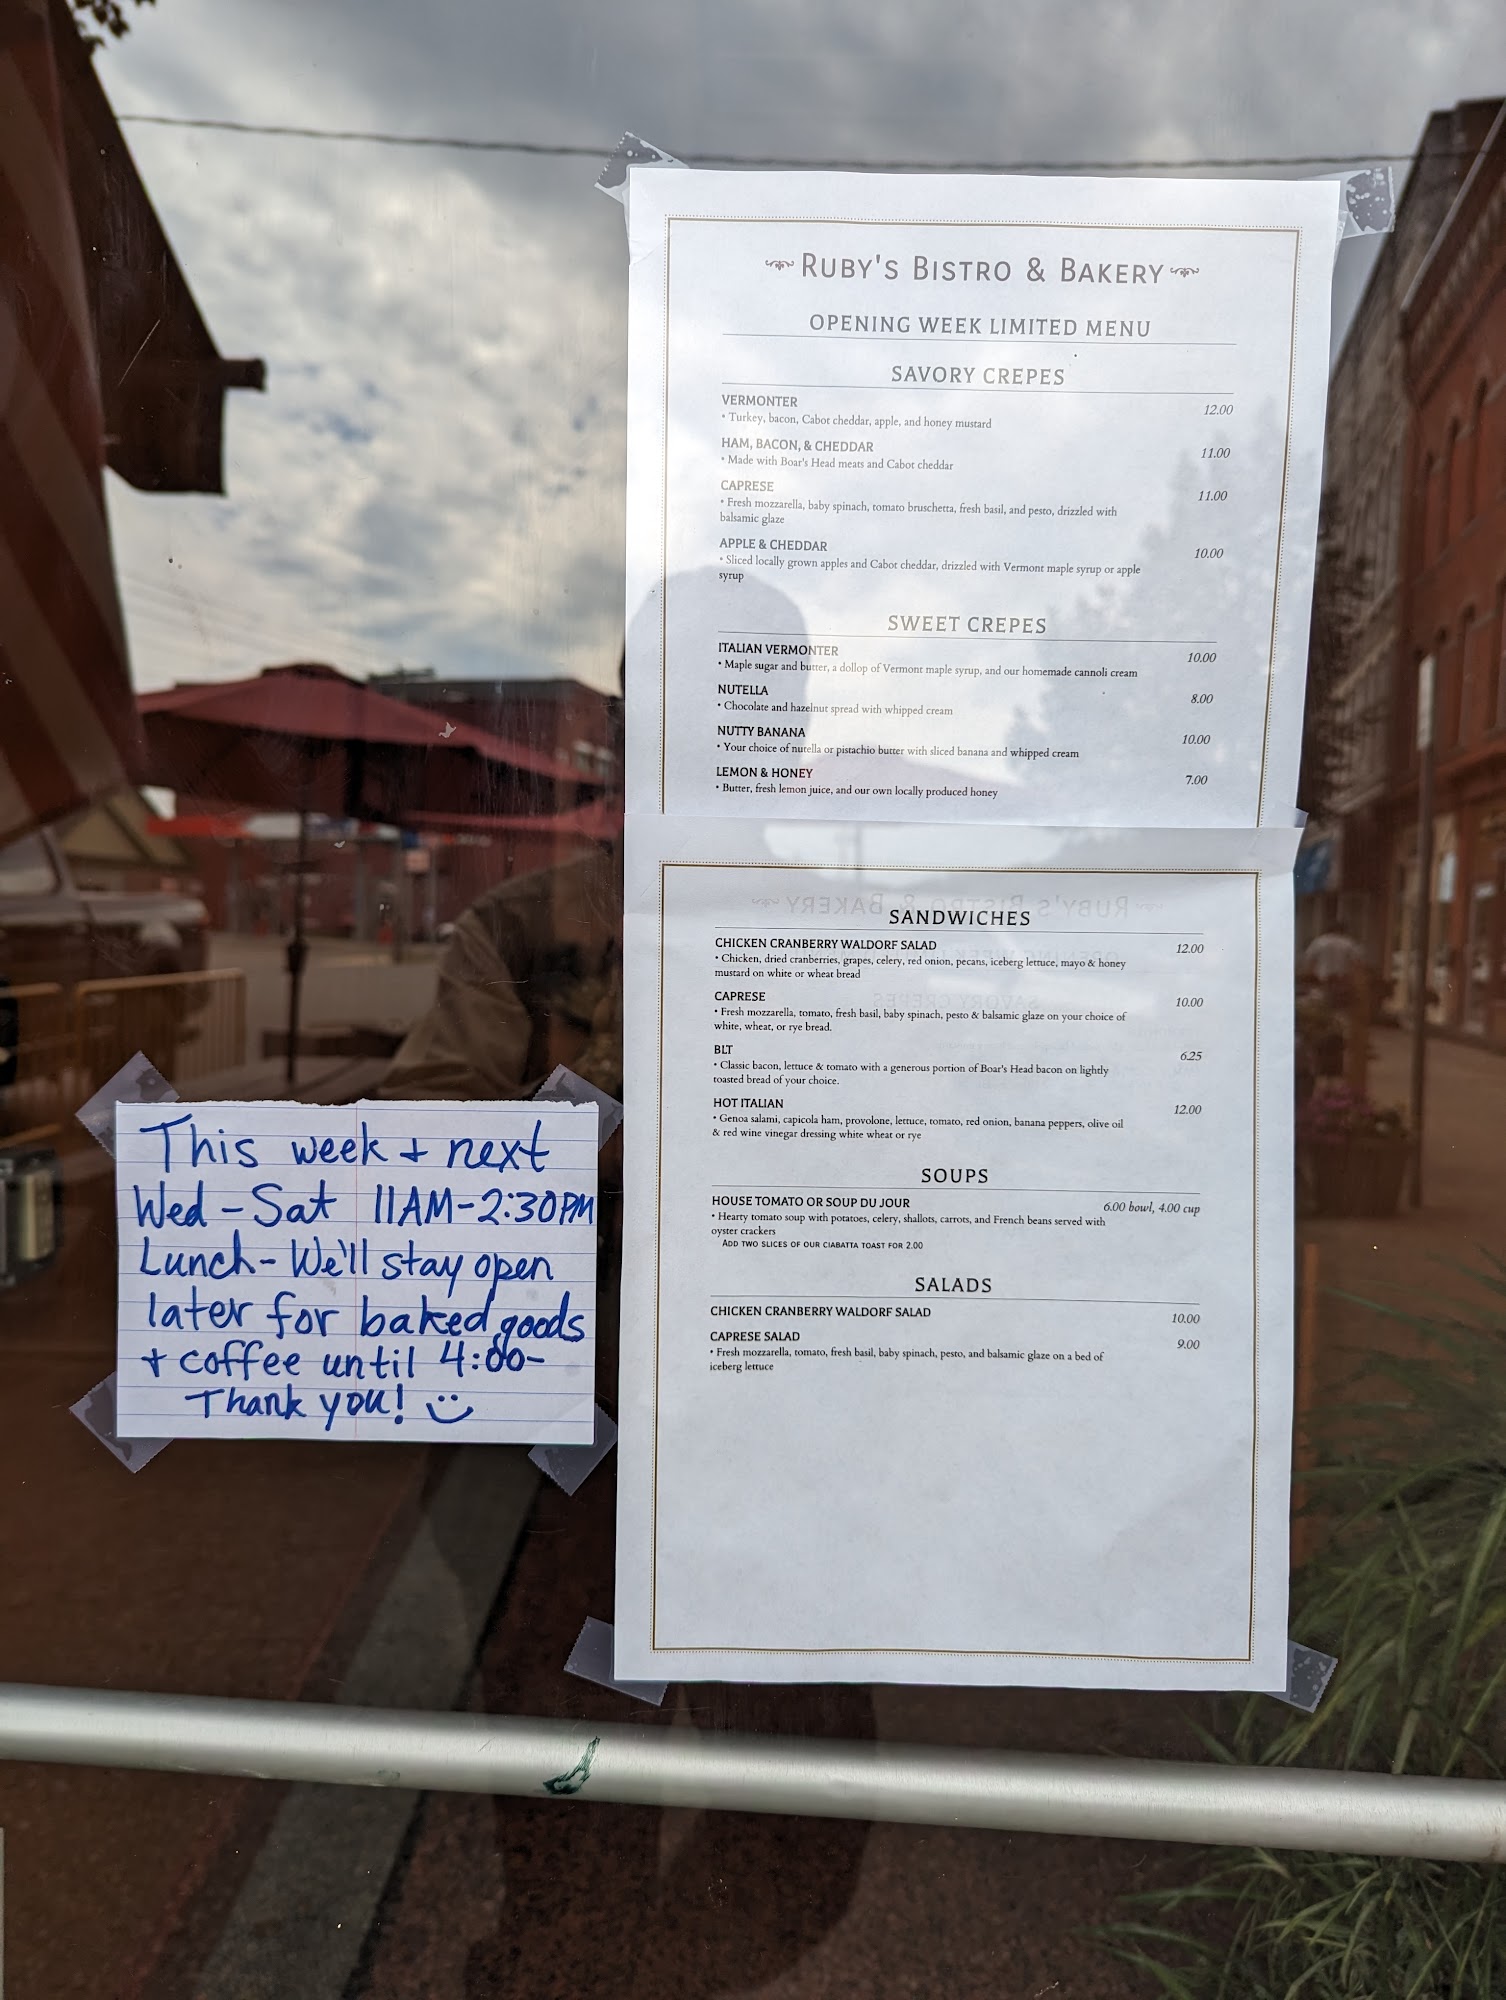 RUBY'S BISTRO & BAKERY
OPENING WEEK LIMITED MENU
SAVORY CREPES
VERMONTER 12.00
• Turkey, bacon, Cabot cheddar, apple, and honey mustard
HAM, BACON, & CHEDDAR 11.00
• Made with Boar's Head meats and Cabot cheddar
CAPRESE 11.00
• Fresh mozzarella, baby spinach, tomato bruschetta, fresh basil, and pesto, drizzled with
balsamic glaze
APPLE & CHEDDAR 10.00
• Sliced locally grown apples and Cabot cheddar, drizzled with Vermont maple syrup or apple
syrup
SWEET CREPES
ITALIAN VERMONTER 10.00
• Maple sugar and butter, a dollop of Vermont maple syrup, and our homemade cannoli cream
NUTELLA 8.00
• Chocolate and hazelnut spread with whipped cream
NUTTY BANANA 10.00
• Your choice of nutella or pistachio butter with sliced banana and whipped cream
LEMON & HONEY 7.00
• Butter, fresh lemon juice, and our own locally produced honey
SANDWICHES
CHICKEN CRANBERRY WALDORF SALAD 12.00
• Chicken, dried cranberries, grapes, celery, red onion, pecans, iceberg lettuce, mayo & honey
mustard on white or wheat bread
CAPRESE 10.00
• Fresh mozzarella, tomato, fresh basil, baby spinach, pesto & balsamic glaze on your choice of
white, wheat, or rye bread.
BLT 6.25
• Classic bacon, lettuce & tomato with a generous portion of Boar's Head bacon on lightly
toasted bread of your choice.
HOT ITALIAN 12.00
• Genoa salami, capicola ham, provolone, lettuce, tomato, red onion, banana peppers, olive oil
& red wine vinegar dressing white wheat or rye
SOUPS
HOUSE TOMATO OR SOUP DU JOUR 6.00 bowl, 4.00 cup
• Hearty tomato soup with potatoes, celery, shallots, carrots, and French beans served with
oyster crackers
ADD TWO SLICES OF OUR CIABATTA TOAST FOR 2.00
SALADS
CHICKEN CRANBERRY WALDORF SALAD 10.00
CAPRESE SALAD 9.00
• Fresh mozzarella, tomato, fresh basil, baby spinach, pesto, and balsamic glaze on a bed of
iceberg lettuce
This week + next
Wed - Sat 11AM-2:30PM
Lunch- We'll stay open
later for baked goods
+ coffee until 4:00-
Thank you!